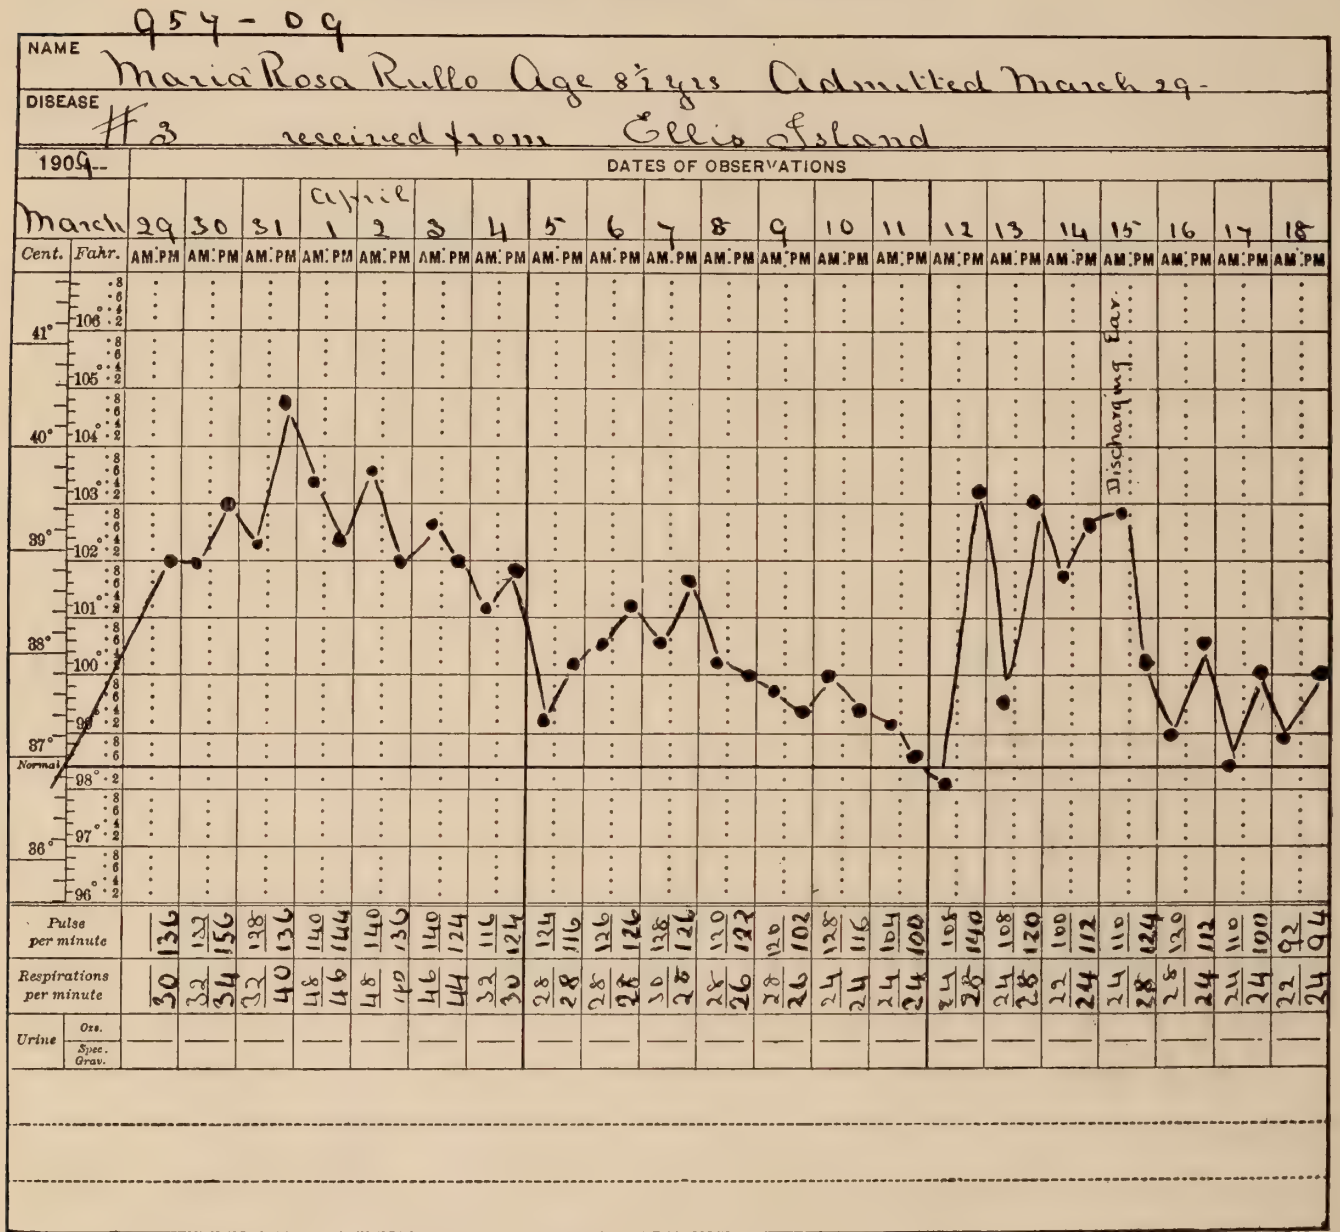 957-09
NAME Maria Rosa Rullo Age 8½ yrs Admitted March 29-
DISEASE #3 received from Ellis Island
1909-- DATES OF OBSERVATIONS
April
March 29 30 31 1 2 3 4 5 6 7 8 9 10 11 12 13 14 15 16 17 18
Cent. Fahr. AM. PM AM. PM AM. PM AM. PM AM. PM AM. PM AM. PM AM. PM AM. PM AM. PM AM. PM AM. PM AM. PM AM. PM AM. PM AM. PM AM. PM AM. PM AM. PM AM. PM AM. PM
8
6
4
106° 2
41°
8
6
4
105° 2
8
6
4
40° 104° 2
8
6
4
103° 2
8
6
39° 4
102° 2
8
6
4
101° 2
8
38° 6
4
100° 2
8
6
4
99° 2
37° 8
6
Normal
98° 2
8
6
4
97° 2
36° 8
6
4
96° 2
Discharging Ear.
Pulse per minute 136 132 156 138 136 140 144 140 136 140 124 116 124 124 116 126 126 128 126 120 122 120 102 128 116 104 100 108 140 108 120 100 112 110 124 120 112 110 100 92 94
Respirations per minute 30 32 34 32 40 48 46 48 40 46 44 32 30 28 28 28 28 30 28 28 26 28 26 24 24 24 24 24 28 24 28 22 24 24 28 28 24 24 24 22 24
Urine Ozs.
Spec. Grav.